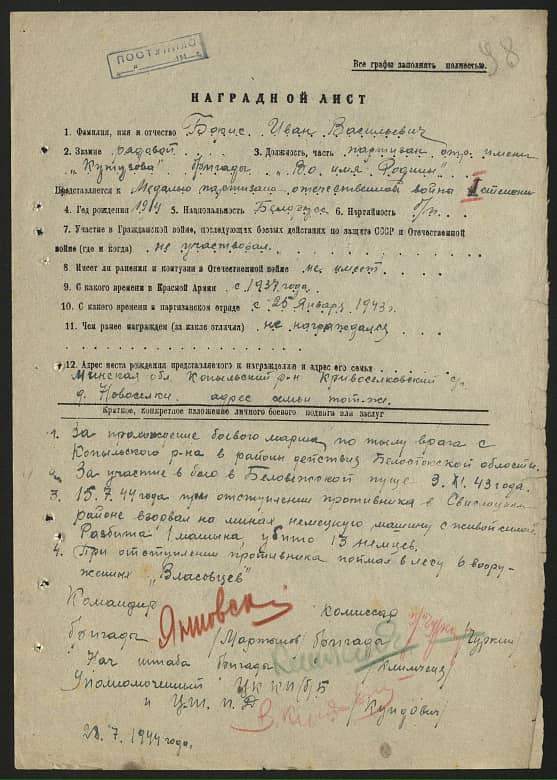 ПОСТУПИЛО
98
Все графы заполнять полностью.
НАГРАДНОЙ ЛИСТ
1. Фамилия, имя и отчество Борис Иван Васильевич
2. Звание рядовой 3. Должность, часть партизан отр. имени
„Кутузова" бригады „За Родину"
Представляется к Медалью партизана отечественной война I степени
4. Год рождения 1914 5. Национальность Белорусс 6. Партийность б/п.
7. Участие в Гражданской войне, последующих боевых действиях по защите СССР и Отечественной
войне (где и когда) не участвовал.
8. Имеет ли ранения и контузии в Отечественной войне не имеет.
9. С какого времени в Красной Армии с 1937 года.
10. С какого времени в партизанском отряде с 25 Января 1943 г.
11. Чем ранее награжден (за какие отличия) не награждался
12. Адрес места рождения представляемого к награждению и адрес его семьи
Минская обл. Копыльский р-н Кривоселковский с/с
д. Новоселки. адрес семьи тот-же.
Краткое, конкретное изложение личного боевого подвига или заслуг
1. За прохождение боевого марша по тылу врага с
Копыльского р-на в районы действия Белостокской области.
2. За участие в бою в Беловежской пуще 3. XI. 43 года.
3. 15.7.44 года при отступлении противника в Свислочском
районе взорвал на минах немецкую машину с живой силой.
Разбита 1 машина, убито 13 немцев.
4. При отступлении противника поймал в лесу 6 воору-
женных „Власовцев"
Командир комиссар
бригады /Мартынов/ бригады /Чуркин/
Нач штаба бригады /Климченя/
Уполномоченный ЦК КП/б/Б
и ЦШПД /Кундович/
28.7.1944 года.